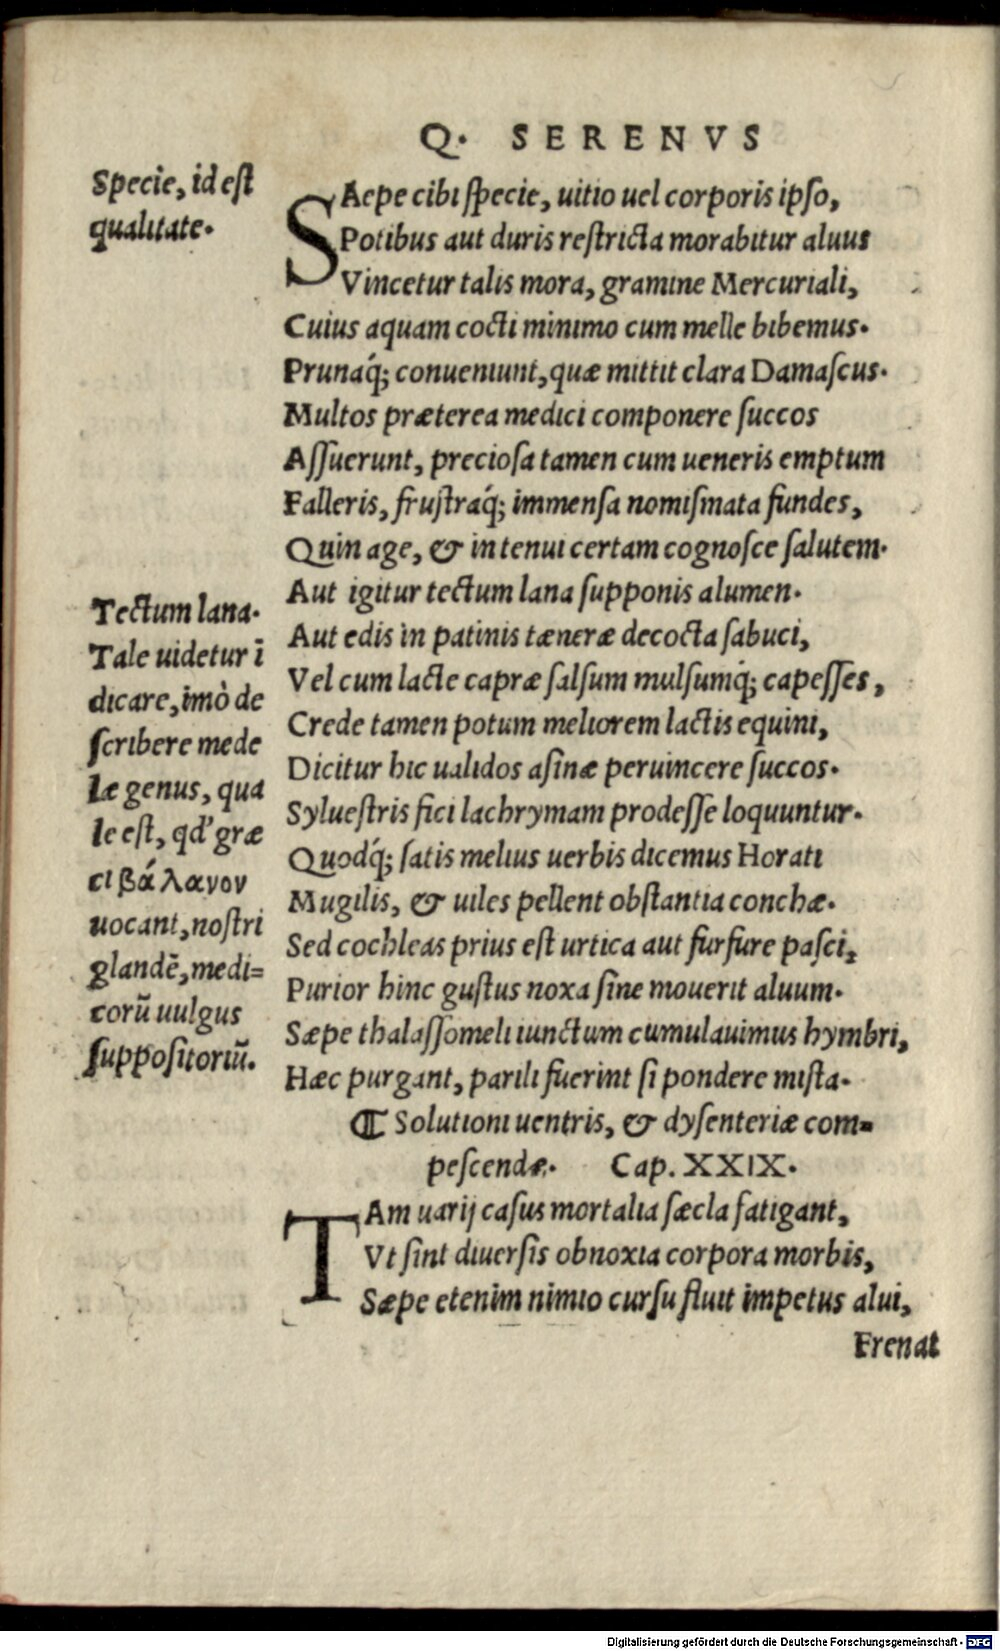 Q. SERENVS
Specie, id eſt
qualitate.
SAepe cibi ſpecie, uitio uel corporis ipſo,
Potibus aut duris reſtricta morabitur aluus
Vincetur talis mora, gramine Mercuriali,
Cuius aquam cocti minimo cum melle bibemus.
Prunaq́; conueniunt, quæ mittit clara Damaſcus.
Multos præterea medici componere ſuccos
Aſſuerunt, precioſa tamen cum ueneris emptum
Falleris, fruſtraq́; immenſa nomiſmata fundes,
Quin age, & in tenui certam cognoſce ſalutem.
Aut igitur tectum lana ſupponis alumen.
Aut edis in patinis tæneræ decocta ſabuci,
Vel cum lacte capræ ſalſum mulſumq́; capeſſes,
Crede tamen potum meliorem lactis equini,
Dicitur hic ualidos aſinæ peruincere ſuccos.
Sylueſtris fici lachrymam prodeſſe loquuntur.
Quodq́; ſatis melius uerbis dicemus Horati
Mugilis, & uiles pellent obſtantia conchæ.
Sed cochleas prius eſt urtica aut furfure paſci,
Purior hinc guſtus noxa ſine mouerit aluum.
Sæpe thalaſſomeli iunctum cumulauimus hymbri,
Hæc purgant, parili fuerint ſi pondere miſta.
Tectum lana.
Tale uidetur ī
dicare, imò de
ſcribere mede
læ genus, qua
le eſt, qd' græ
ci βάλανον
uocant, noſtri
glandē, medi=
corū uulgus
ſuppoſitoriū.
¶ Solutioni uentris, & dyſenteriæ com=
peſcendæ. Cap. XXIX.
TAm uarij caſus mortalia ſæcla fatigant,
Vt ſint diuerſis obnoxia corpora morbis,
Sæpe etenim nimio curſu fluit impetus alui,
Frenat
Digitalisierung gefördert durch die Deutsche Forschungsgemeinschaft - DFG